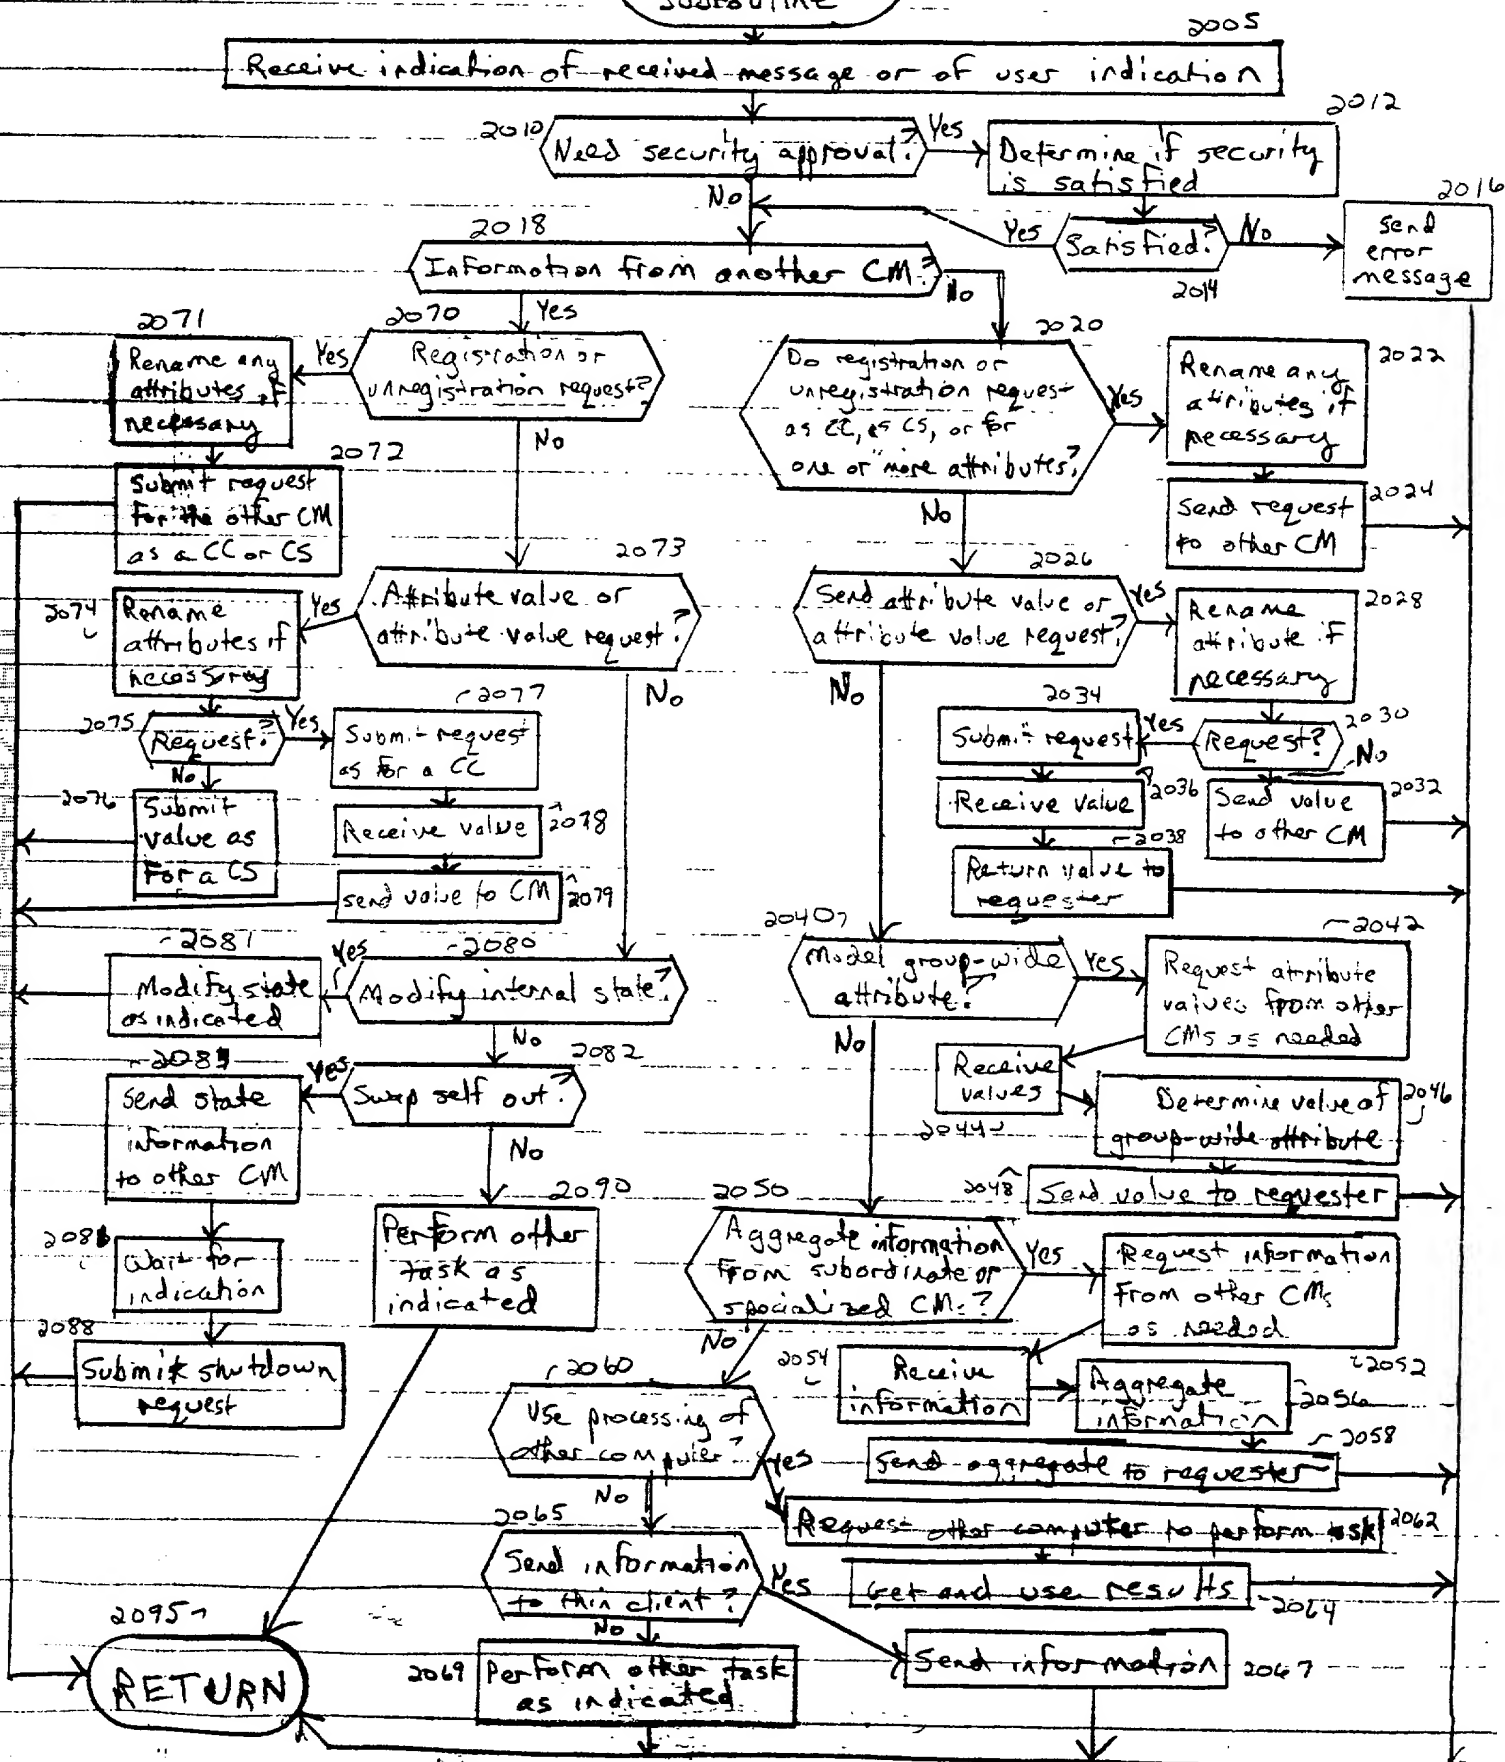 SUBROUTINE
2005
Receive indication of received message or of user indication
2010
Need security approval?
Yes
No
2012
Determine if security
is satisfied
2014
Satisfied?
Yes
No
2016
Send
error
message
2018
Information from another CM?
Yes
No
2070
Registration or
unregistration request?
Yes
No
2071
Rename any
attributes if
necessary
2072
Submit request
for the other CM
as a CC or CS
2073
Attribute value or
attribute value request?
Yes
No
2074
Rename
attributes if
necessary
2075
Request?
Yes
No
2076
Submit
value as
for a CS
2077
Submit request
as for a CC
2078
Receive value
2079
send value to CM
2080
Modify internal state?
Yes
No
2081
Modify state
as indicated
2082
Swap self out?
Yes
No
Send state
information
to other CM
Wait for
indication
2088
Submit shutdown
request
2090
Perform other
task as
indicated
2020
Do registration or
unregistration request
as CC, as CS, or for
one or more attributes?
Yes
No
2022
Rename any
attributes if
necessary
2024
Send request
to other CM
2026
Send attribute value or
attribute value request?
Yes
No
2028
Rename
attribute if
necessary
2030
Request?
Yes
No
2032
Send value
to other CM
2034
Submit request
2036
Receive value
2038
Return value to
requester
2040
Model group-wide
attribute?
Yes
No
2042
Request attribute
values from other
CMs as needed
2044
Receive
values
2046
Determine value of
group-wide attribute
2048
Send value to requester
2050
Aggregate information
from subordinate or
specialized CMs?
Yes
No
2052
Request information
from other CMs
as needed
2054
Receive
information
2056
Aggregate
information
2058
Send aggregate to requester
2060
Use processing of
other computer?
Yes
No
2062
Request other computer to perform task
2064
Get and use results
2065
Send information
to thin client?
Yes
No
2067
Send information
2069
Perform other task
as indicated
2095
RETURN